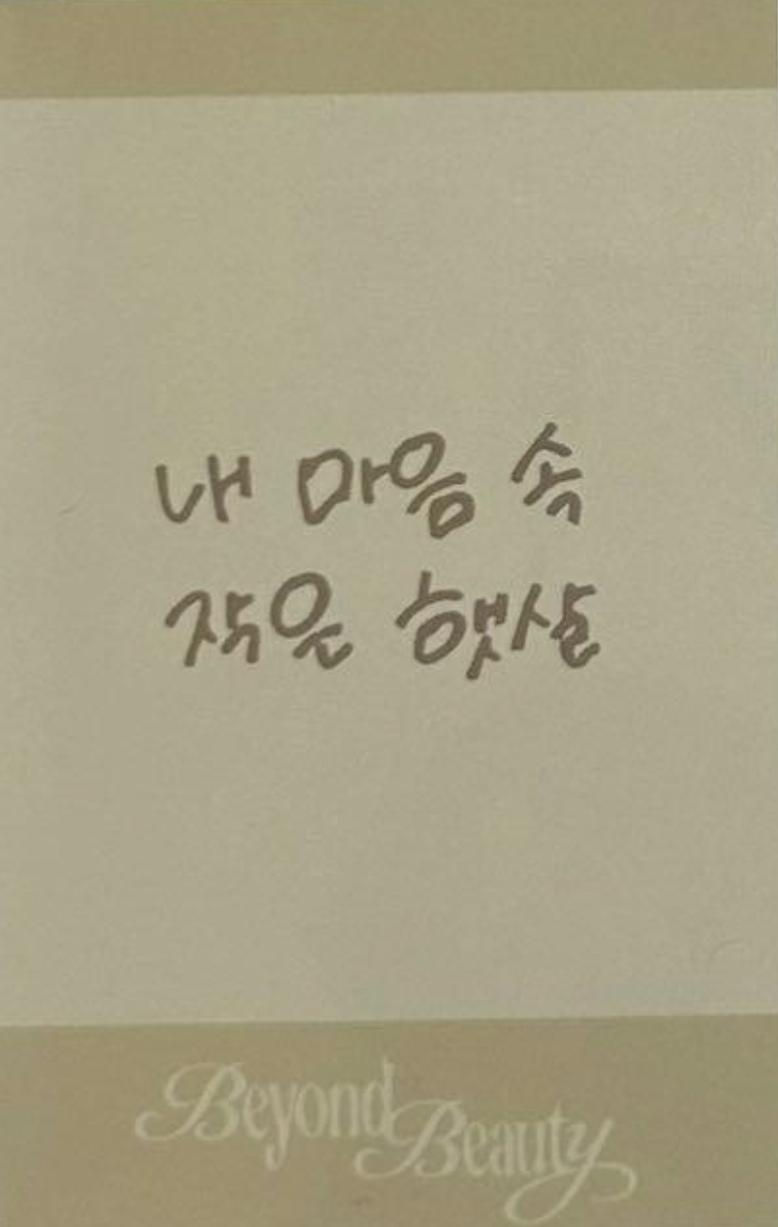 내 마음 속
작은 햇살
Beyond
Beauty